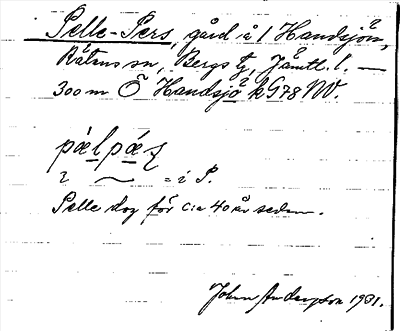 Pelle-Pers, gård å 1 Handsjön,
Rätans sn, Bergs tg, Jämtl. l. —
300 m Ö Handsjö k G78 NV.
pælpæʒ
2 ~ = i P.
Pelle dog för c:a 40 år sedan.
John Andersson 1931.